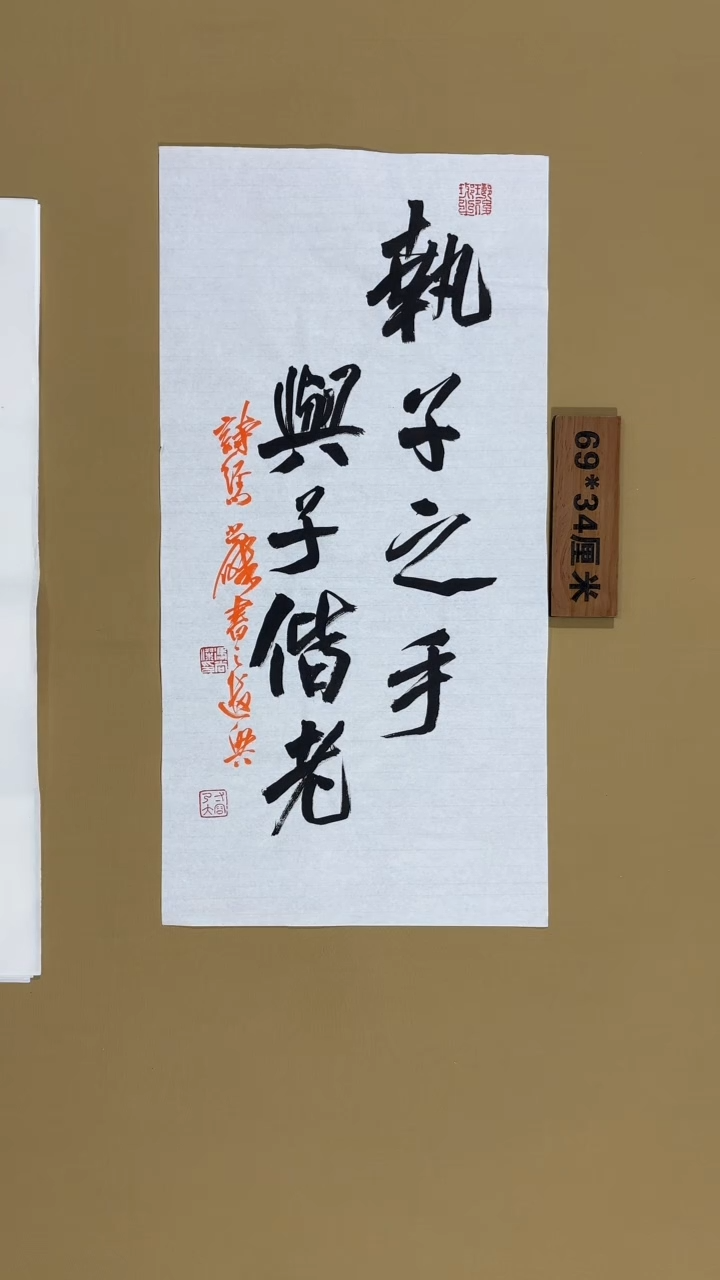 執子之手
與子偕老
詩經
書之遣興
69*34厘米